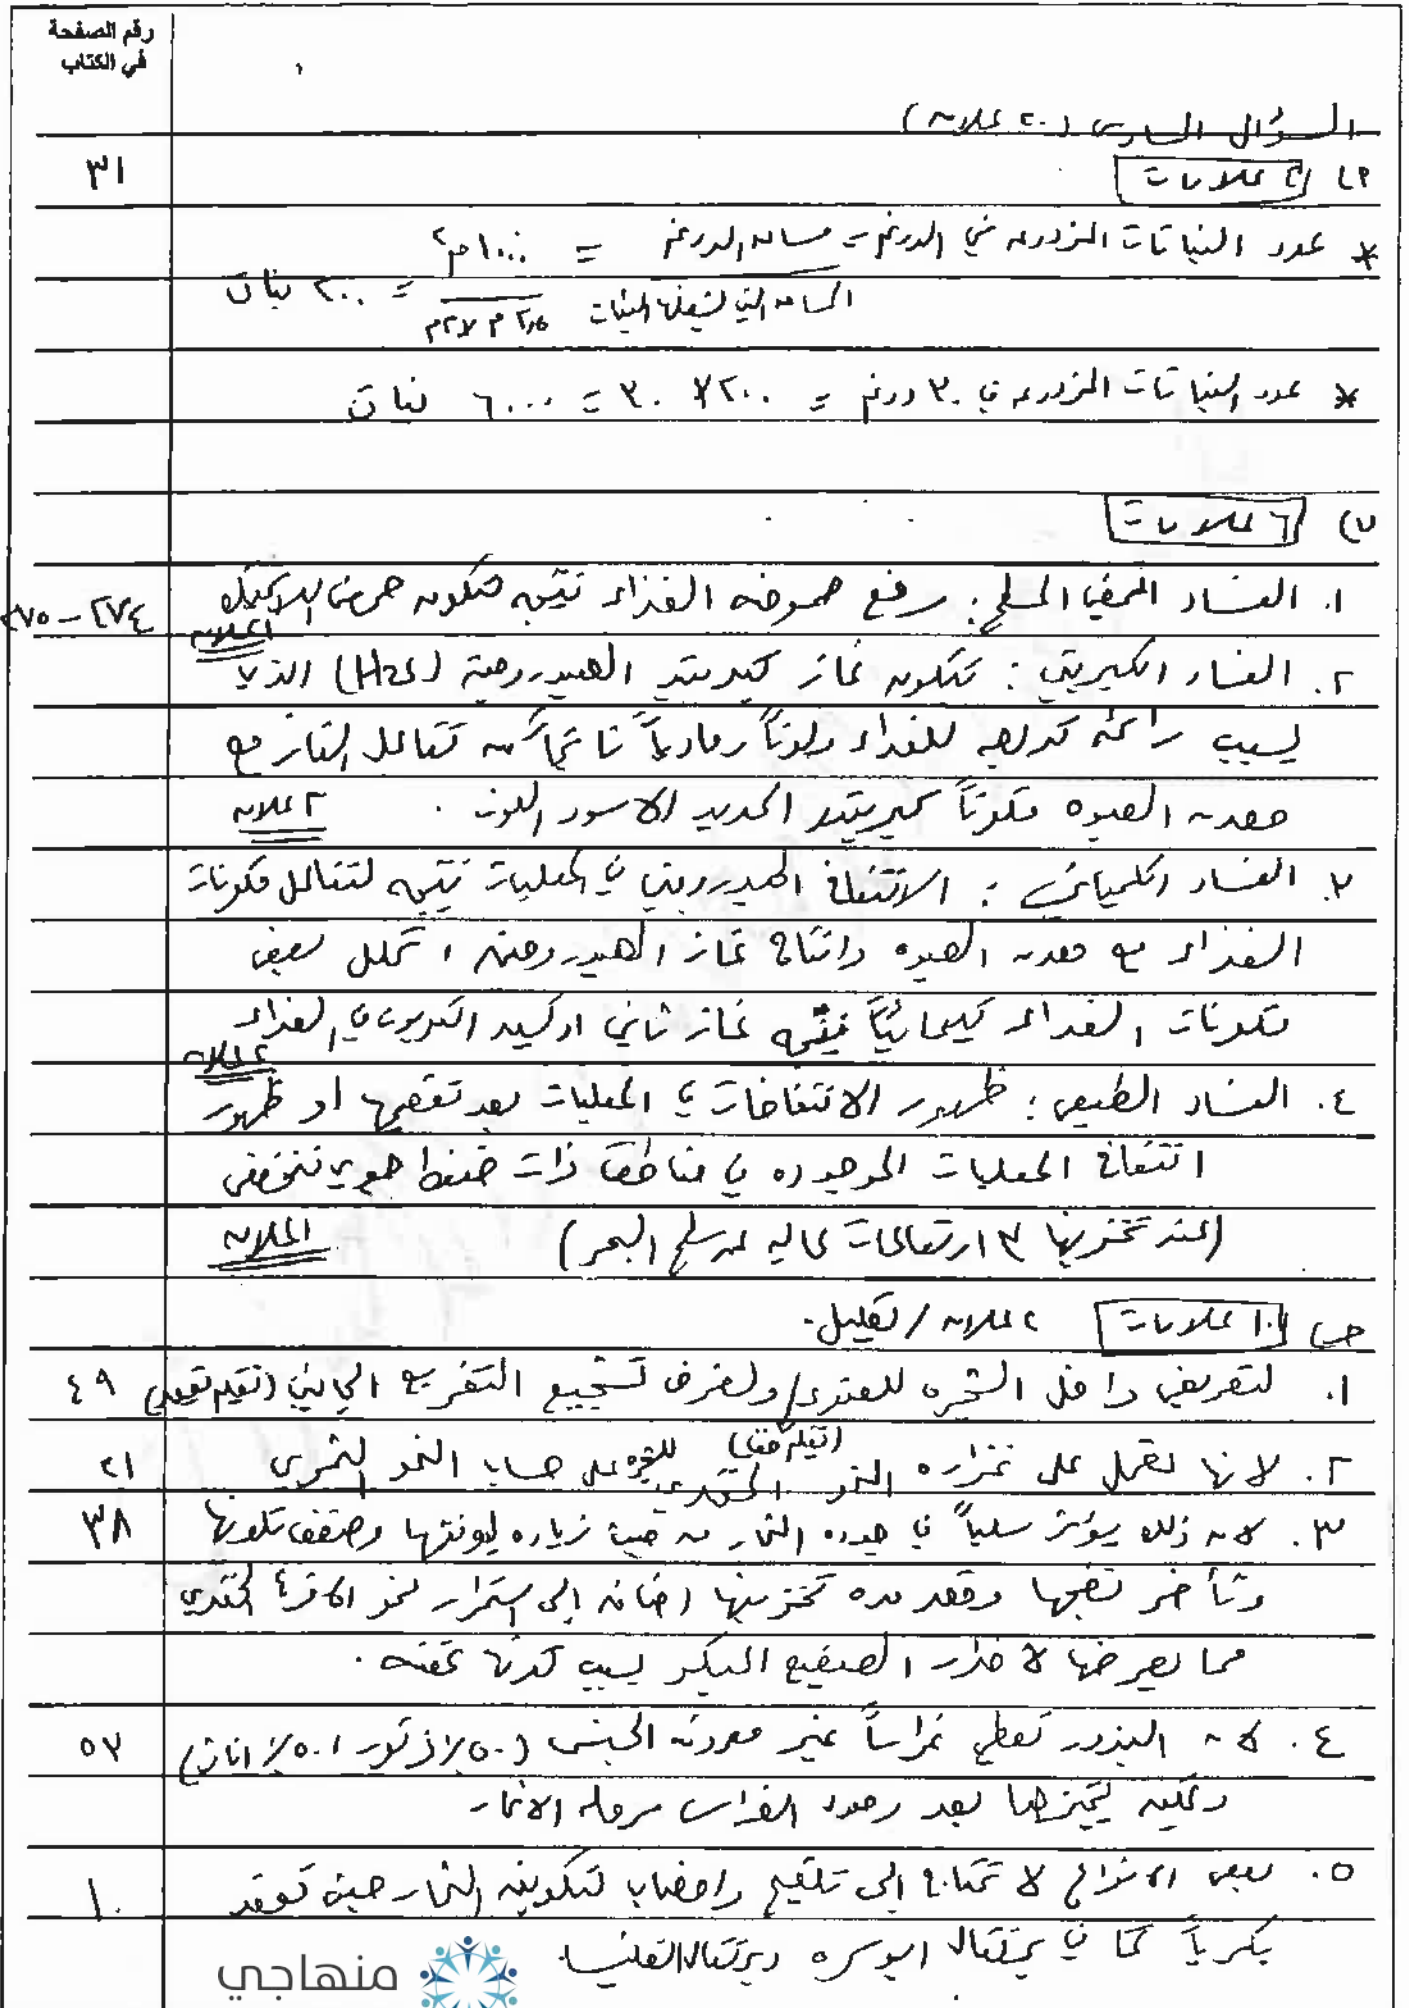 رقم الصفحة
في الكتاب
السؤال السادس (٢٠ علامة)
٣١
أ) (٤ علامات)
* عدد النباتات المزروعة في الدونم = مساحة الدونم = ١٠٠٠م٢ = ٢٠٠ نبات
المساحة التي يشغلها النبات ٢٫٥ م × ٢م
* عدد النباتات المزروعة في ٣٠ دونم = ٢٠٠ × ٣٠ = ٦٠٠٠ نبات
ب) (٦ علامات)
١. الفساد الحمضي المسطح: رفع حموضة الغذاء نتيجة لتكون حمض اللاكتيك
٢٧٤ - ٢٧٥
علامة
٢. الفساد الكبريتي: تتكون غاز كبريتيد الهيدروجين (H2S) الذي
يسبب رائحة كريهة للغذاء ولوناً رمادياً ناتجاً من تفاعل الغاز مع
معدن العبوة مكوناً كبريتيد الحديد الاسود اللون. ٢ علامة
٣. الفساد الكيميائي: الانتفاخ الهيدروجيني في المعلبات نتيجة لتفاعل مكونات
الغذاء مع معدن العبوة وانتاج غاز الهيدروجين، تحلل بعض
مكونات الغذاء كيميائياً نتيجة غاز ثاني اوكسيد الكربون في الغذاء
٢ علامة
٤. الفساد الطبيعي: ظهور الانتفاخات في المعلبات بعد تعقيمها او ظهور
انتفاخ المعلبات الموجودة في مناطق ذات ضغط جوي منخفض
(عند تخزينها في ارتفاعات عالية عن سطح البحر) علامة
جـ) (١٠ علامات) ٢ علامة / تعليل.
١. لتعريض داخل الشجرة للضوء / ولغرض تشجيع التفريع الجانبي (تقليم تقصير) ٤٩
(تقليم خف)
٢. لانها تعمل على غزارة النمو الخضري للشجرة على حساب النمو الثمري ٢١
٣. لان ذلك يؤثر سلبياً في جودة الثمار من حيث زيادة ليونتها وضعف تلونها ٣٨
وتأخر نضجها وقصر مدة تخزينها اضافة إلى استمرار نمو الافرع الخضري
مما يعرضها لاضرار الصقيع المبكر بسبب كونها غضة.
٤. لان البذور تعطي غراساً غير معروفة الجنس (٥٠٪ ذكور، ٥٠٪ اناث) ٥٧
ويمكن تمييزها بعد وصول الغراس مرحلة الاثمار
٥. بعض الانواع لا تحتاج إلى تلقيح واخصاب لتكوين الثمار حيث تعقد ١٠
بكرياً كما في برتقال ابوسرة وبرتقال الفلنسيا.
منهاجي